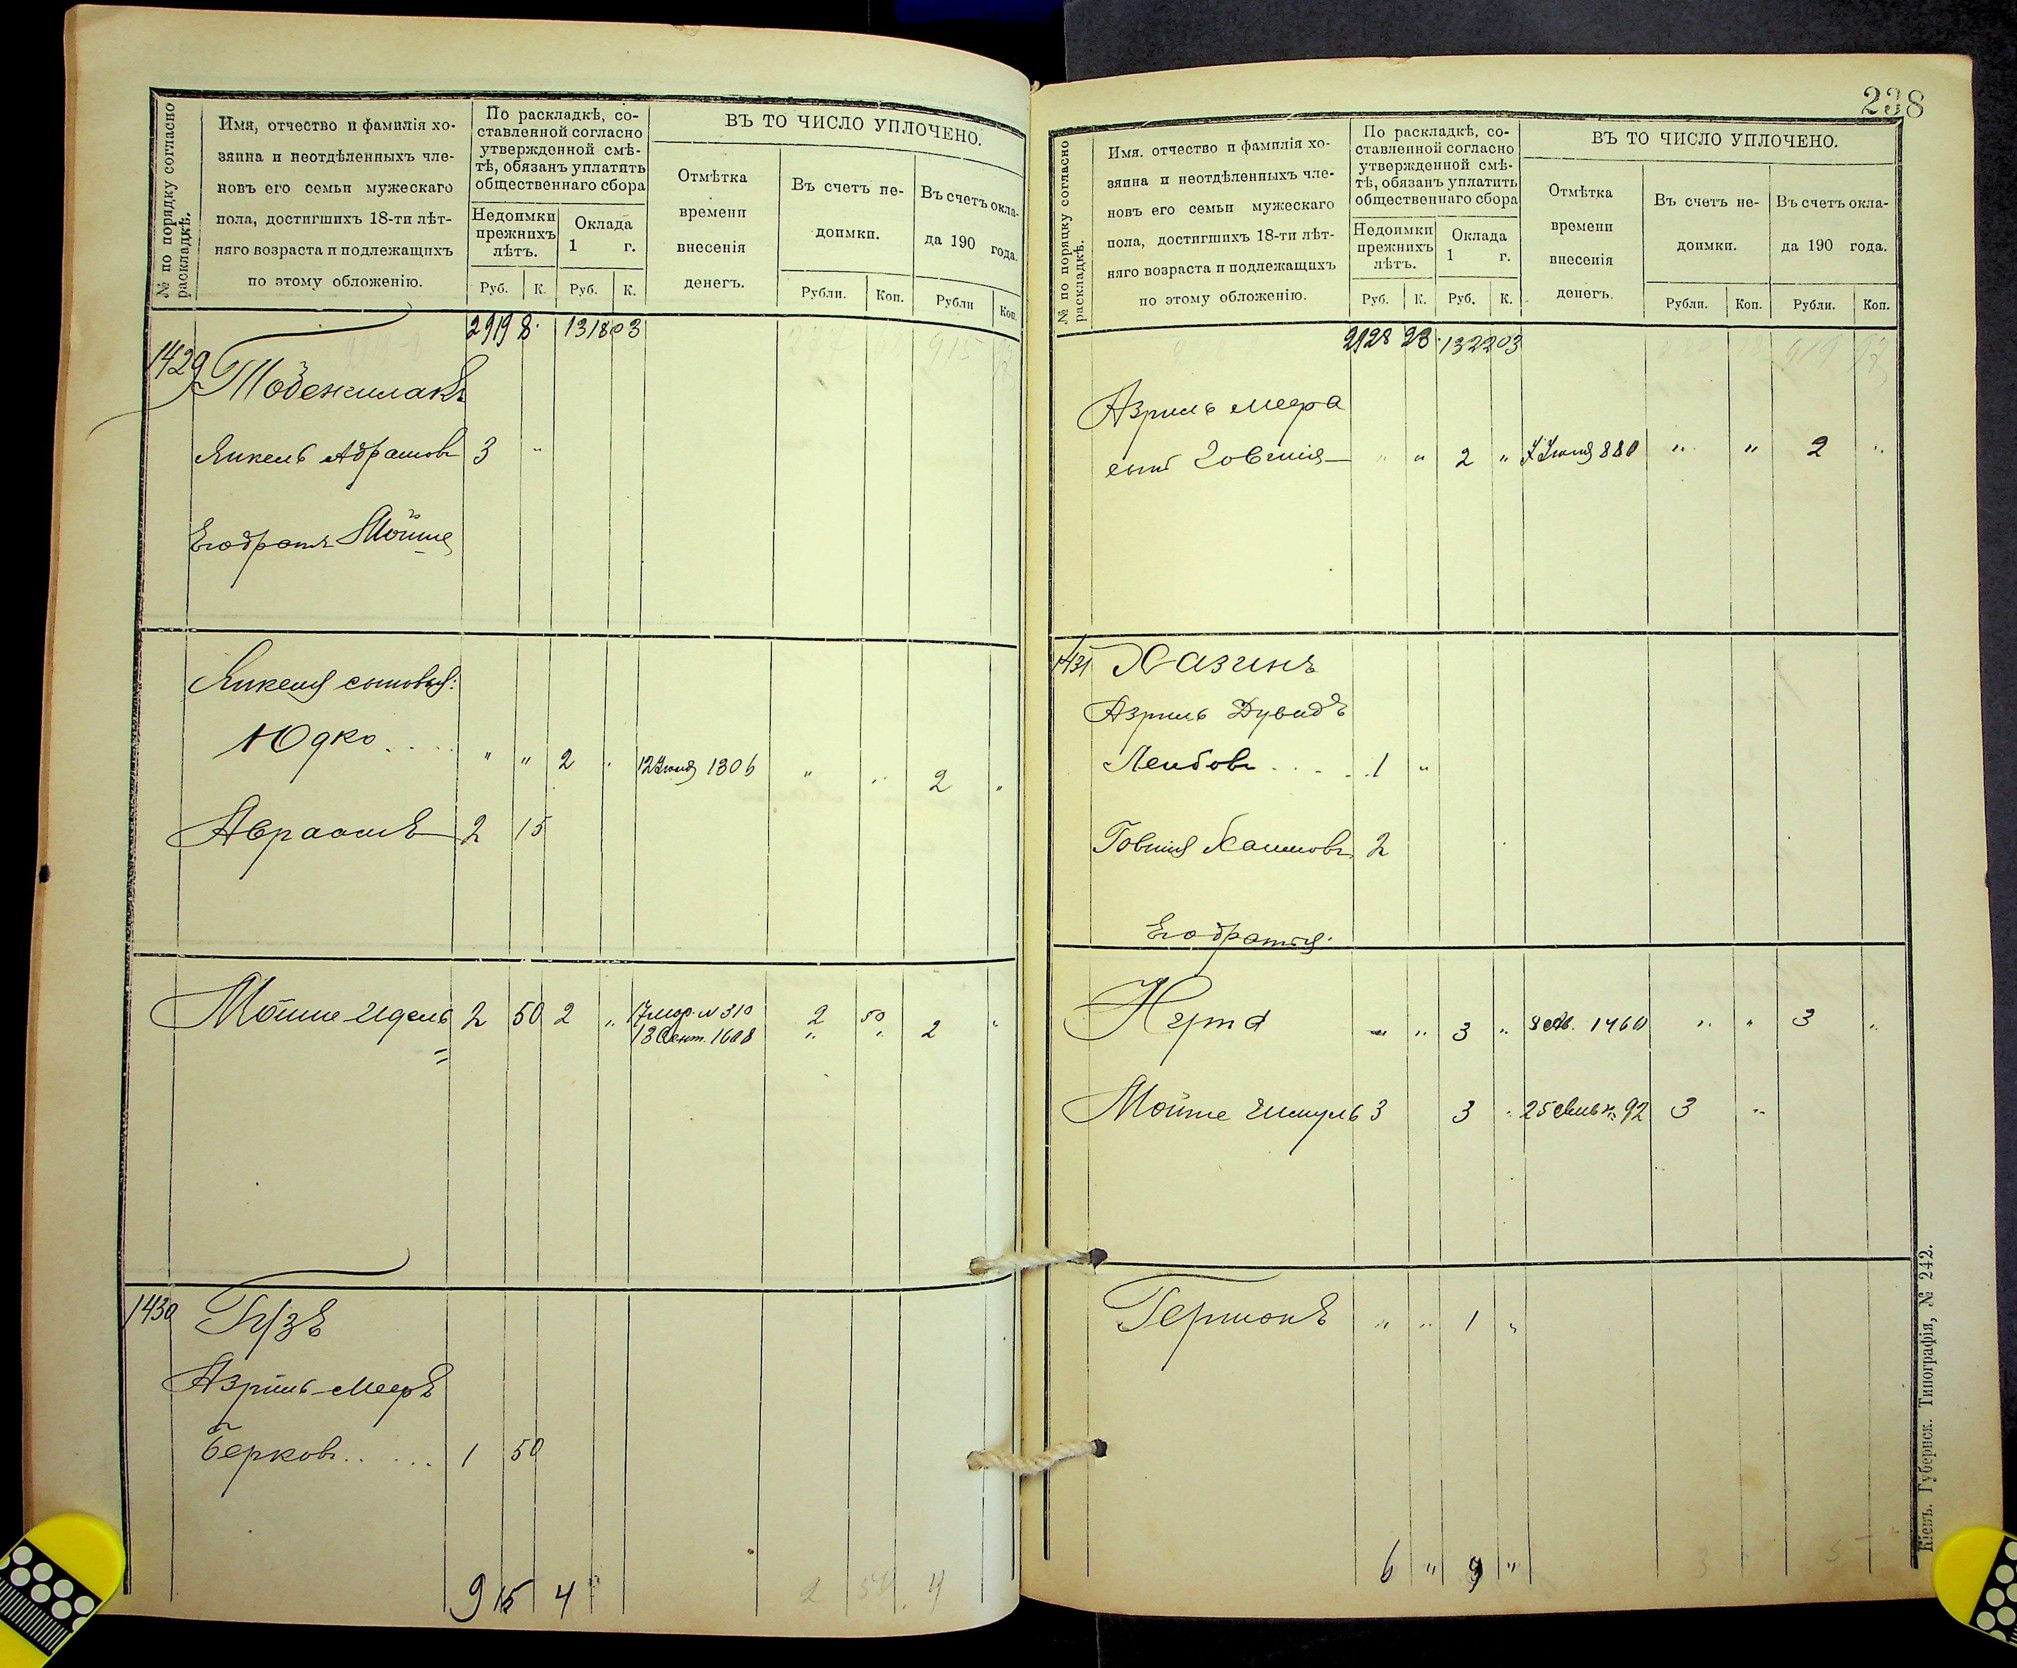 № по порядку согласно раскладкѣ.
Имя, отчество и фамилія хо-
зяина и неотдѣленныхъ чле-
новъ его семьи мужескаго
пола, достигшихъ 18-ти лѣт-
няго возраста и подлежащихъ
по этому обложенію.
По раскладкѣ, со-
ставленной согласно
утвержденной смѣ-
тѣ, обязанъ уплатить
общественнаго сбора
Недоимки
прежнихъ
лѣтъ.
Оклада
1 г.
Руб. К. Руб. К.
ВЪ ТО ЧИСЛО УПЛОЧЕНО.
Отмѣтка
времени
внесенія
денегъ.
Въ счетъ не-
доимки.
Въ счетъ окла-
да 190 года.
Рубли. Коп. Рубли Коп.
2919 8 1318 03
1429
Янкель Абрамов 3 "
Его братъ Мойше
Янкеля сыновья:
Юдко.... " " 2 " 12 Іюля 1306 " " 2 "
Авраамъ 2 15
Мойше-Идель 2 50 2 " 17 мар. N 310 2 50
13 Сент. 1608 " " 2 "
1430 Гузъ
Азріиль-Мееръ
Берков..... 1 50
9 15 4
2 50 4
238
№ по порядку согласно раскладкѣ.
Имя. отчество и фамилія хо-
зяина и неотдѣленныхъ чле-
новъ его семьи мужескаго
пола, достигшихъ 18-ти лѣт-
няго возраста и подлежащихъ
по этому обложенію.
По раскладкѣ, со-
ставленной согласно
утвержденной смѣ-
тѣ, обязанъ уплатить
общественнаго сбора
Недоимки
прежнихъ
лѣтъ.
Оклада
1 г.
Руб. К. Руб. К.
ВЪ ТО ЧИСЛО УПЛОЧЕНО.
Отмѣтка
времени
внесенія
денегъ.
Въ счетъ не-
доимки.
Въ счетъ окла-
да 190 года.
Рубли. Коп. Рубли. Коп.
2928 23 1322 03
Азриль Меера
сынъ Говшія " " 2 " 7 Іюля 880 " " 2 "
1431 Хазинъ
Азриль Дувидъ
Лейбов..... 1 "
Говшия Хаимовъ 2
Его братья:
Нута " " 3 " 8 Ав. 1460 " " 3 "
Мойше Шмуль 3 3 " 92 3 "
Гершонъ " " 1 "
6 " 9 "
3 5
Кіевъ. Губернск. Типографія, № 242.